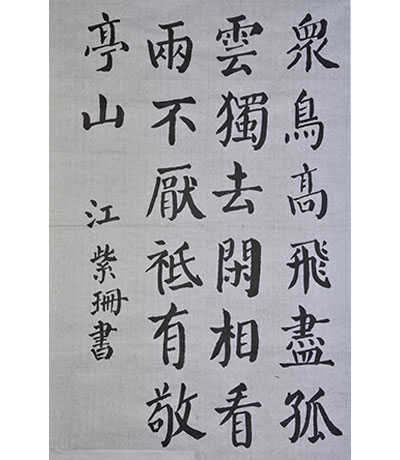 眾鳥高飛盡孤
雲獨去閑相看
兩不厭祗有敬
亭山 江紫珊書